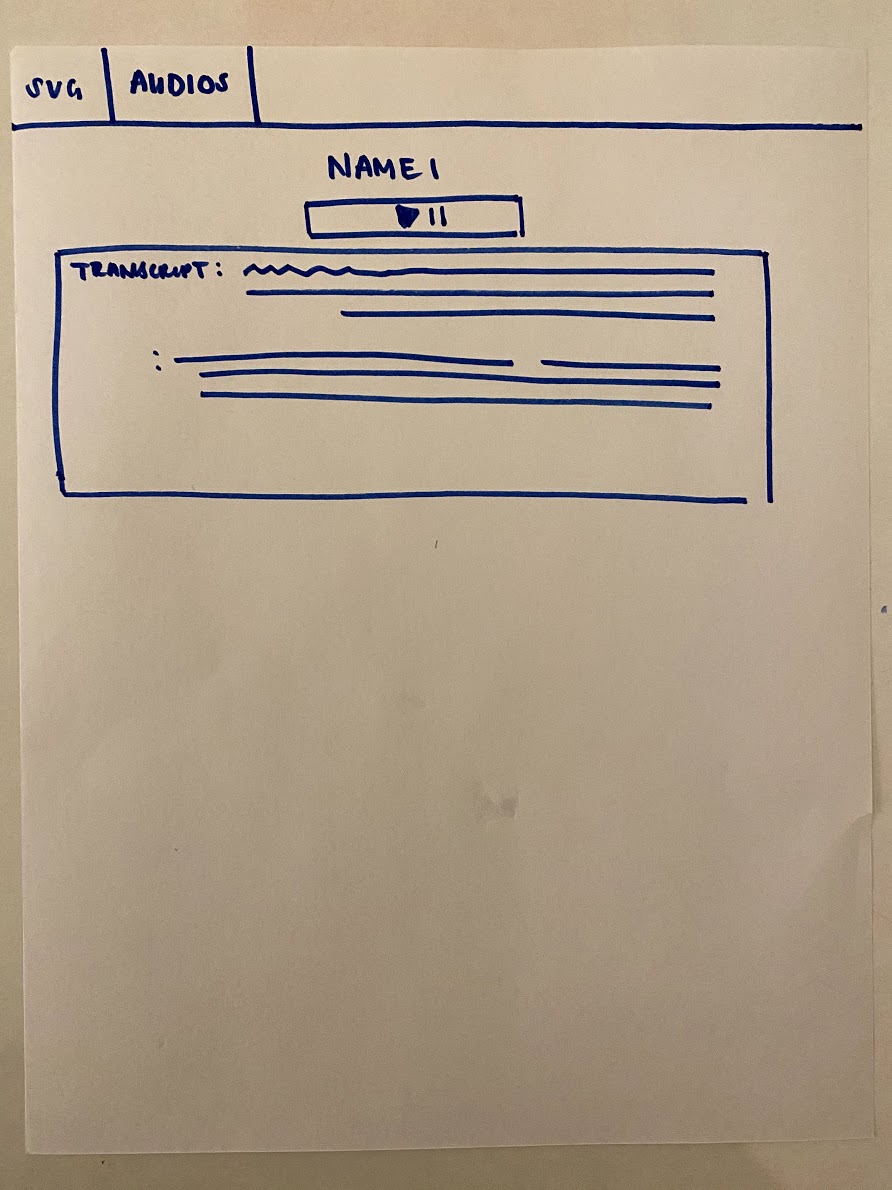 SVG AUDIOS
NAME 1
TRANSCRIPT:
: